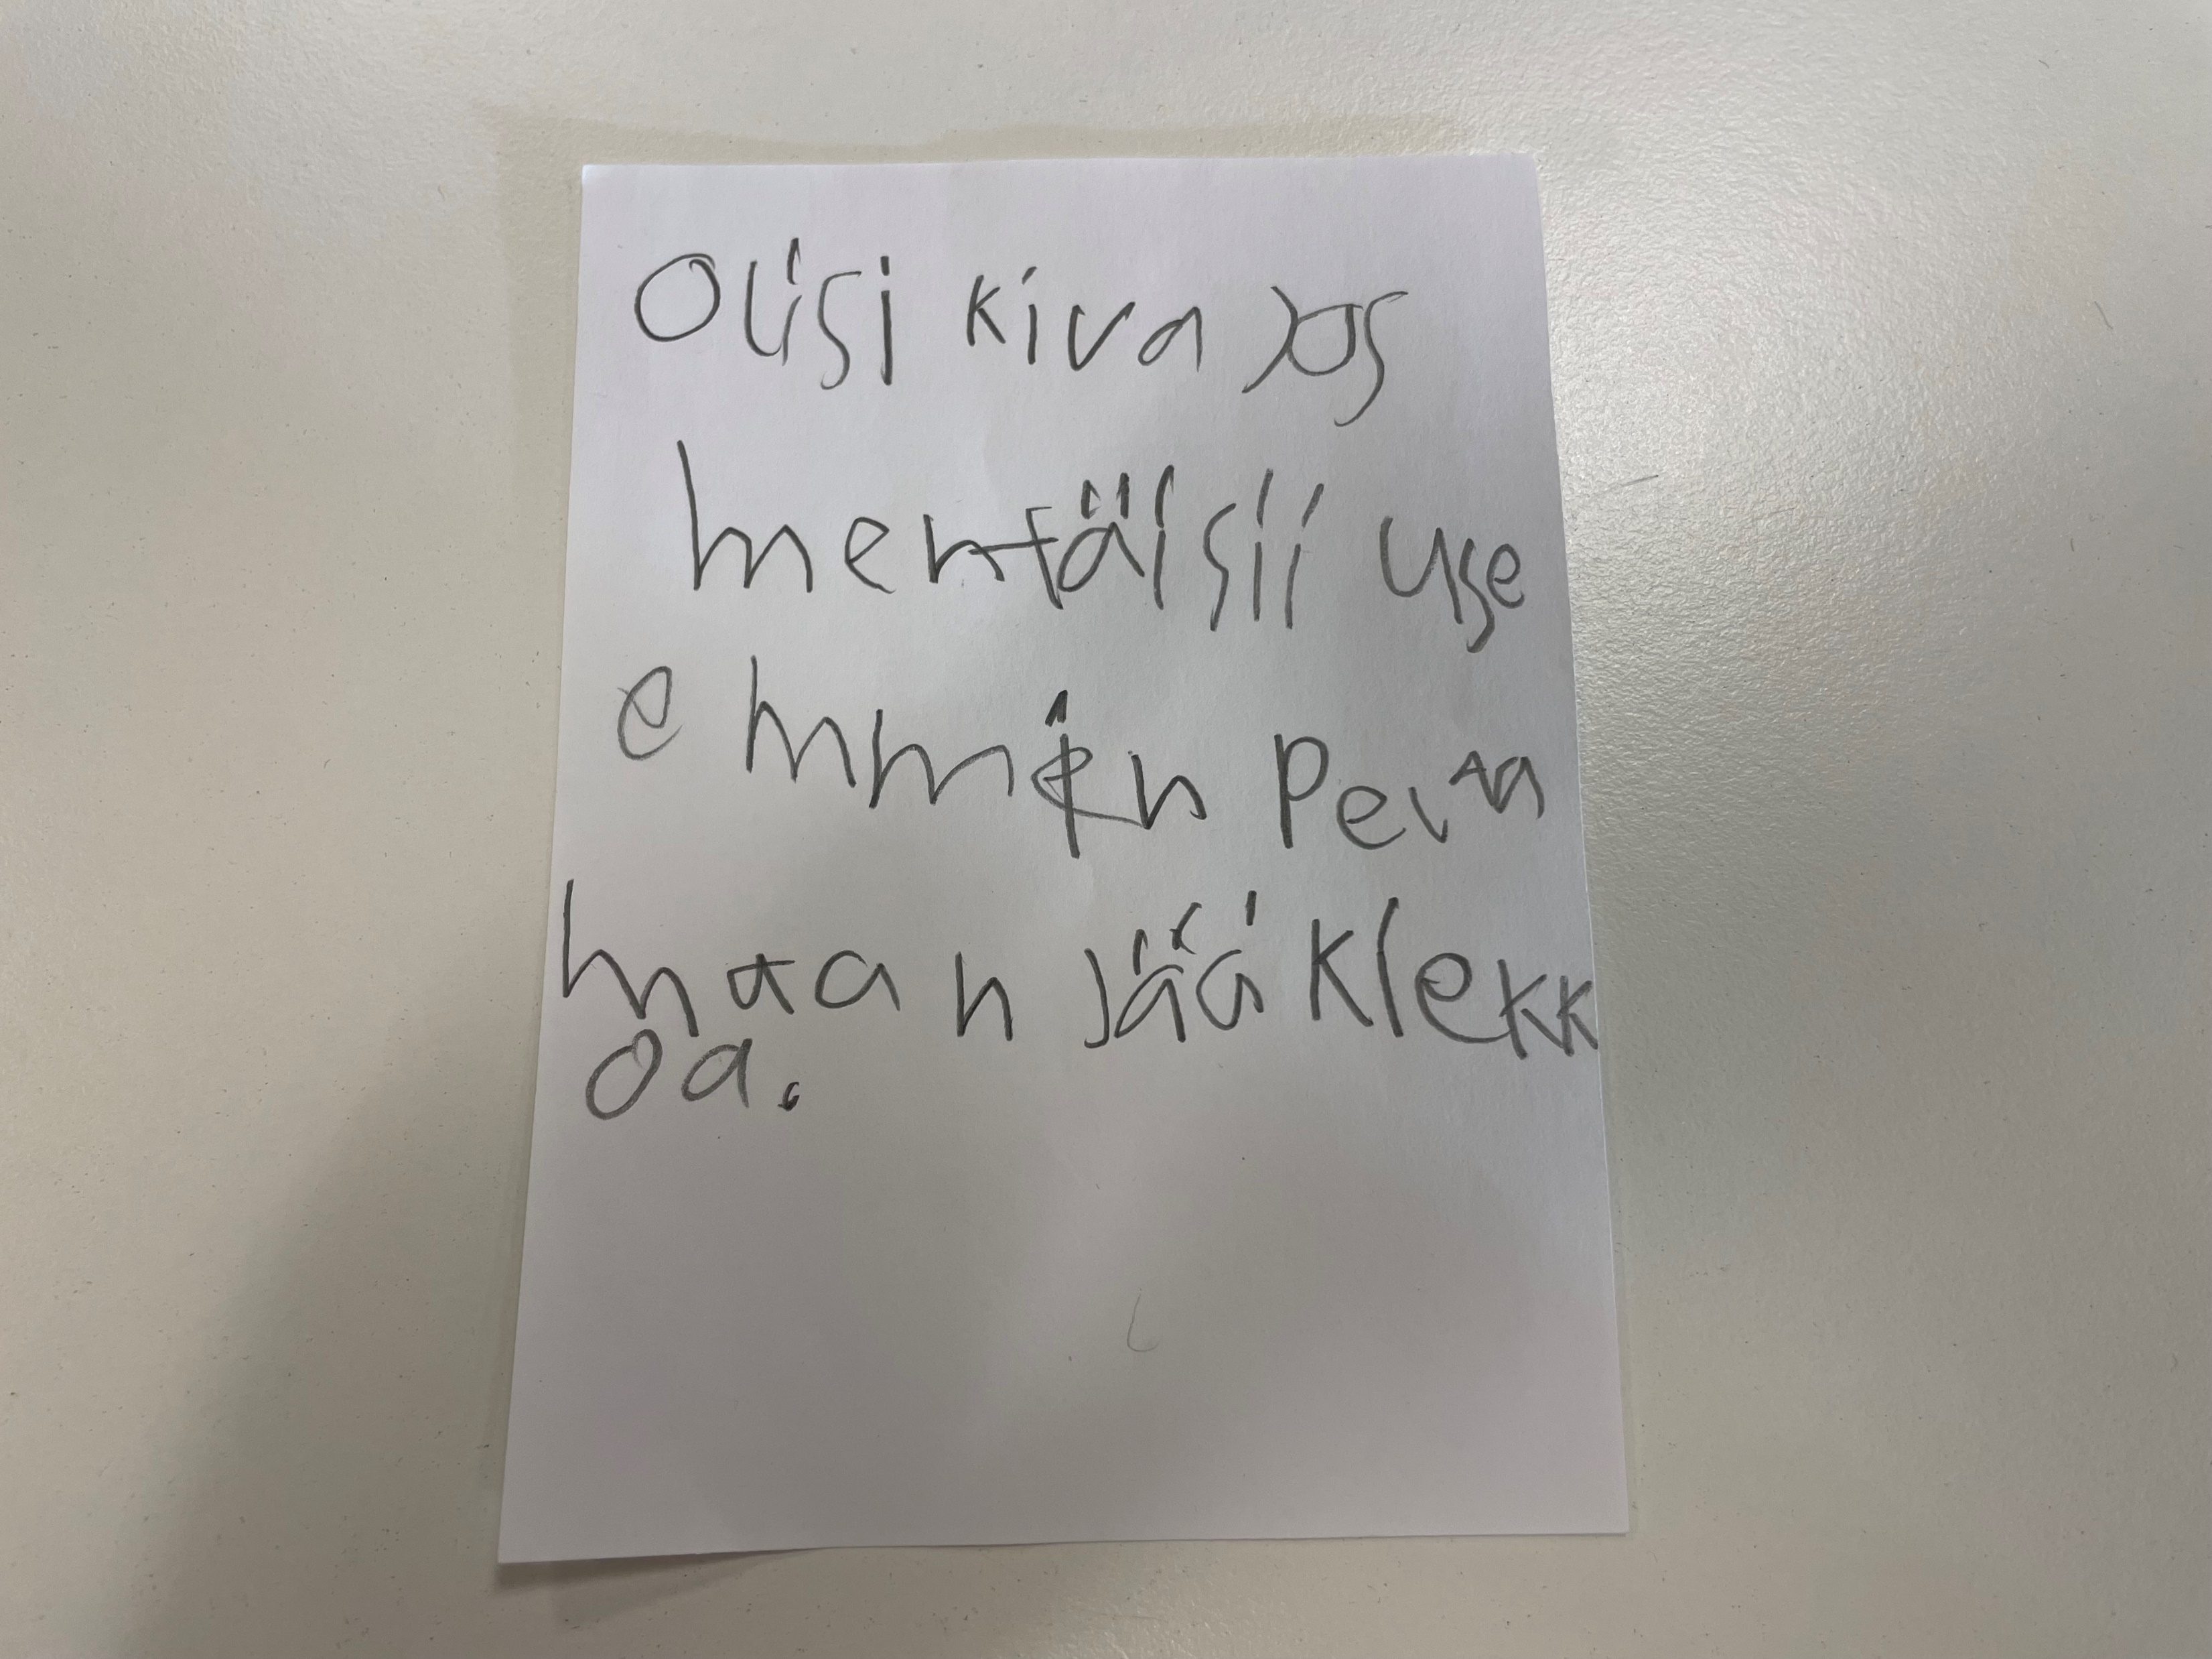 Olisi kiva jos
mentäisii use
emmin pelaa
maan jääklekk
oa.